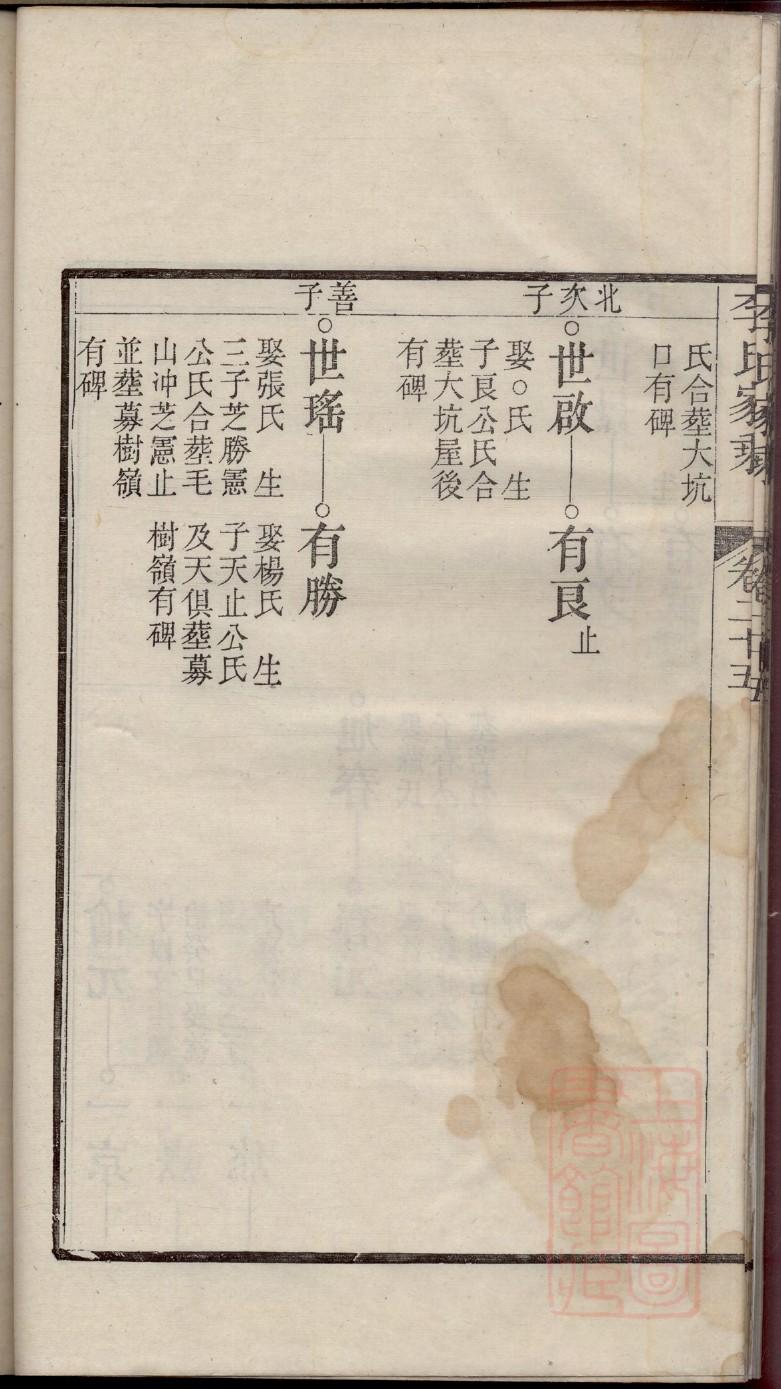 李氏家乘
卷二十五
氏合塟大坑
口有碑
北次子
世啟
有良止
娶○氏　生
子良公氏合
塟大坑屋後
有碑
善子
世瑤
有勝
娶張氏　生
三子芝勝憲
公氏合塟毛
山冲芝憲止
並塟募樹嶺
有碑
娶楊氏　生
子天止公氏
及天俱塟募
樹嶺有碑
上海圖
書館藏